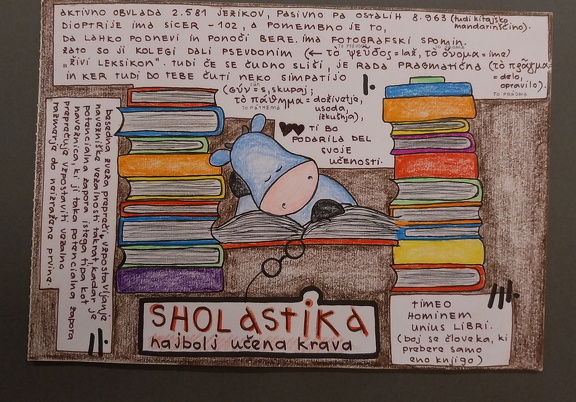 AKTIVNO OBVLADA 2.581 JEZIKOV, PASIVNO PA OSTALIH 8.963 (tudi kitajsko mandarinščino).
DIOPTRIJE IMA SICER -102, A POMEMBNO JE TO,
DA LAHKO PODNEVI IN PONOČI BERE. IMA FOTOGRAFSKI SPOMIN.
ZATO SO JI KOLEGI DALI PSEVDONIM (← τὸ ψεῦδος = laž, τὸ ὄνομα = ime)
"ŽIVI LEKSIKON". TUDI ČE SE ČUDNO SLIŠI, JE RADA PRAGMATIČNA (τὸ πρᾶγμα = delo, opravilo).
IN KER TUDI DO TEBE ČUTI NEKO SIMPATIJO
(σύν = s, skupaj;
τὸ πάθημα = doživetje, usoda, izkušnja),
TI BO
PODARILA DEL
SVOJE
UČENOSTI.
I.
besedna zveza preprečiti vzpostavljanje
navezniške vezalnosti takrat, kadar je
potencialna zapora istega tipa kot
naveznica, ki ji taka potencialna zapora
preprečuje vzpostaviti vezalno
razmerje do neizražene prvine.
II.
SHOLASTIKA
najbolj učena krava
III.
TIMEO
HOMINEM
UNIUS LIBRI.
(boj se človeka, ki
prebere samo
eno knjigo)